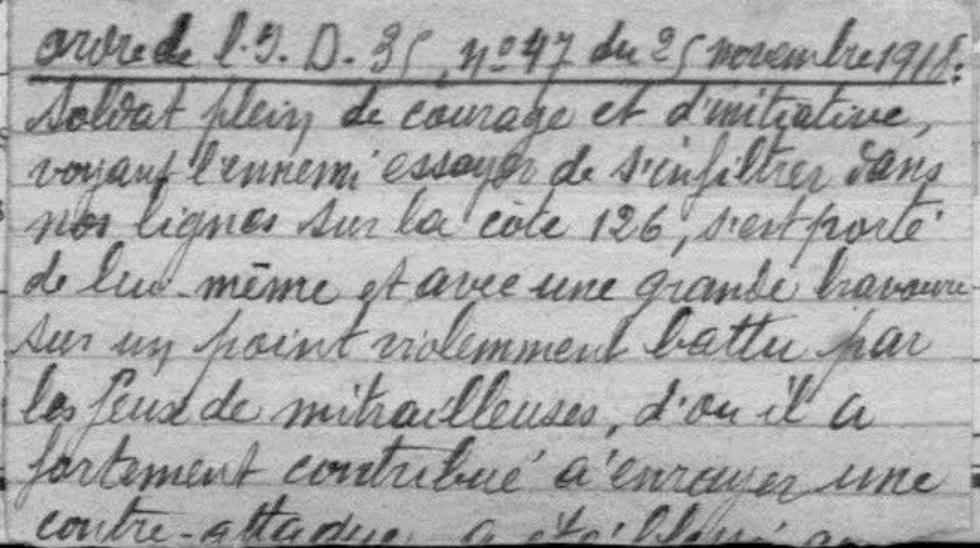 ordre de l'I. D. 35, nº 47 du 25 novembre 1918:
Soldat plein de courage et d'initiative,
voyant l'ennemi essayer de s'infiltrer dans
nos lignes sur la côte 126, s'est porté
de lui-même et avec une grande bravoure
sur un point violemment battu par
les feux de mitrailleuses, d'ou il a
fortement contribué à enrayer une
contre-attaque. a été blessé au